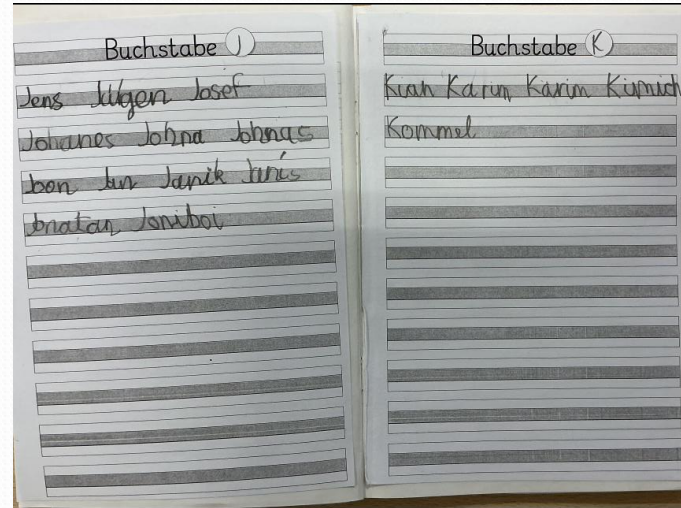 Buchstabe J
Jens Jürgen Josef
Johanes Johna Johnas
Jon Jan Janik Janis
Jonatan Joniboi
Buchstabe K
Kiah Karim Karim Kimich
Kommel